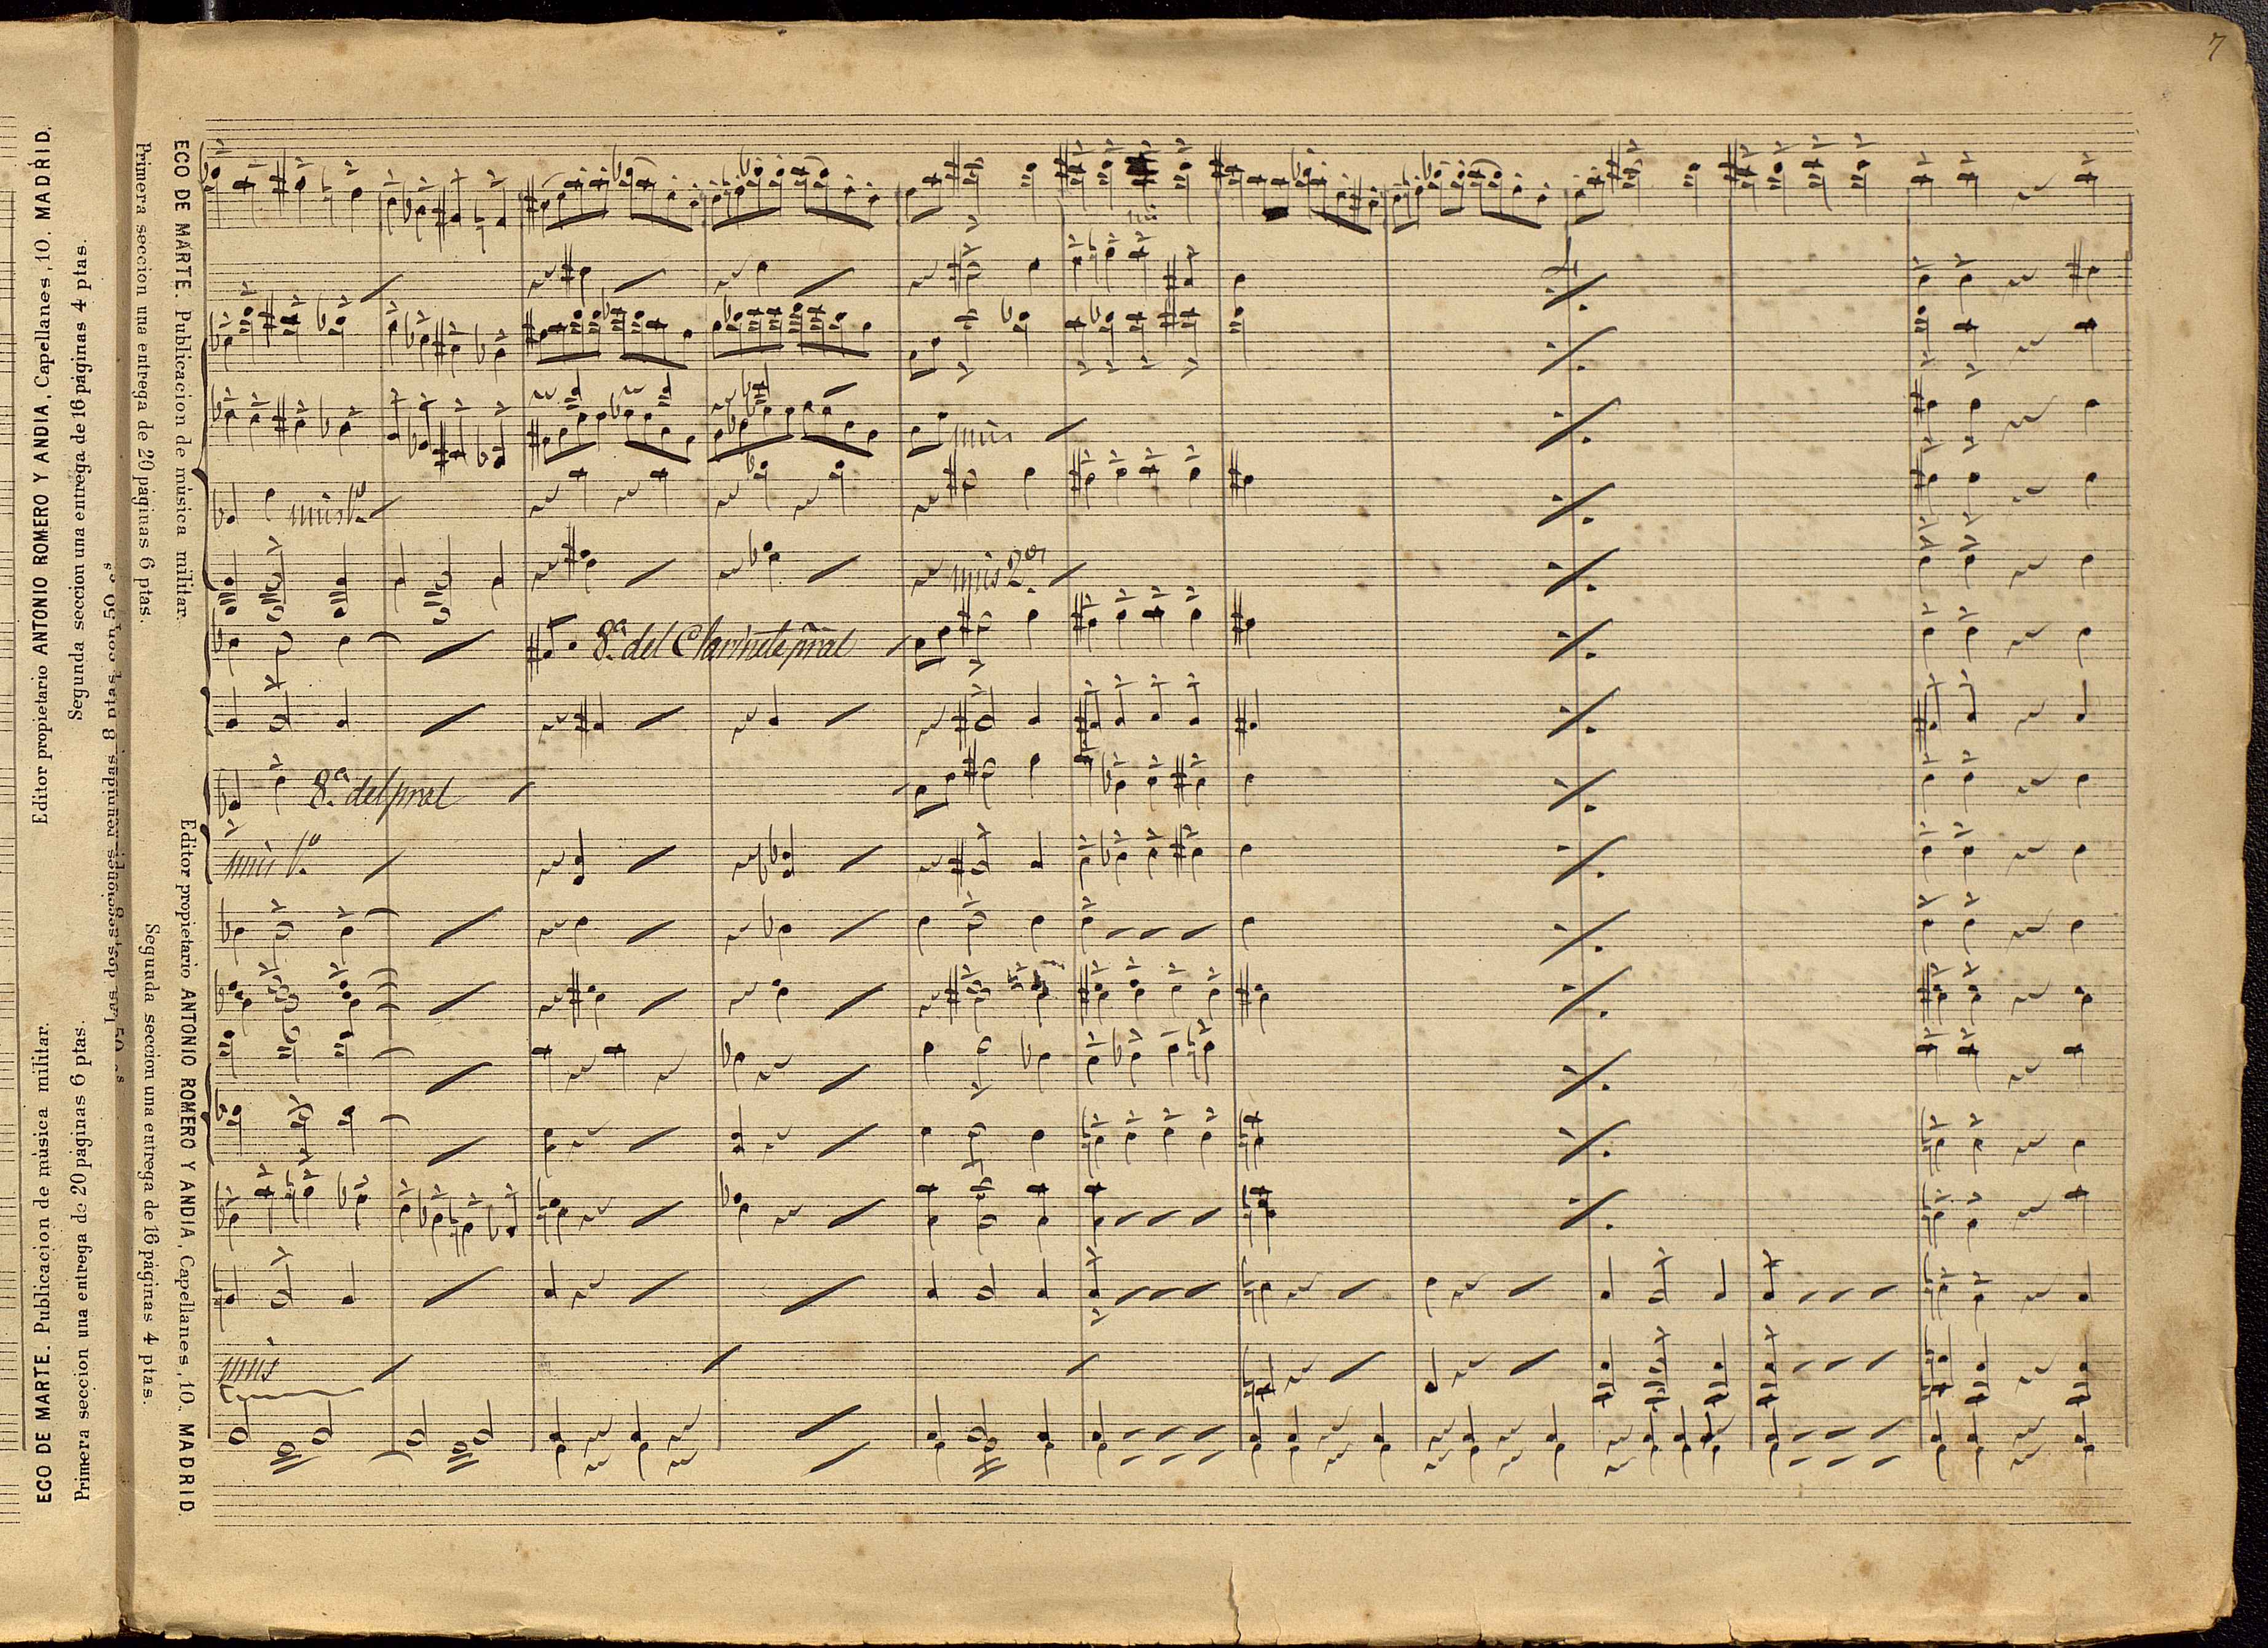 7
ECO DE MARTE. Publicacion de música militar.
Editor propietario ANTONIO ROMERO Y ANDIA, Capellanes, 10. MADRID.
Primera seccion una entrega de 20 páginas 6 ptas.
Segunda seccion una entrega de 16 páginas 4 ptas.
ECO DE MARTE. Publicacion de música militar.
Editor propietario ANTONIO ROMERO Y ANDIA, Capellanes, 10. MADRID.
Primera seccion una entrega de 20 páginas 6 ptas.
Segunda seccion una entrega de 16 páginas 4 ptas.
Las dos secciones reunidas 8 ptas con 50 cs
unis
unis 1º
unis 2º
8ª del Clarinete pral
8ª del pral
unis 1º
unis